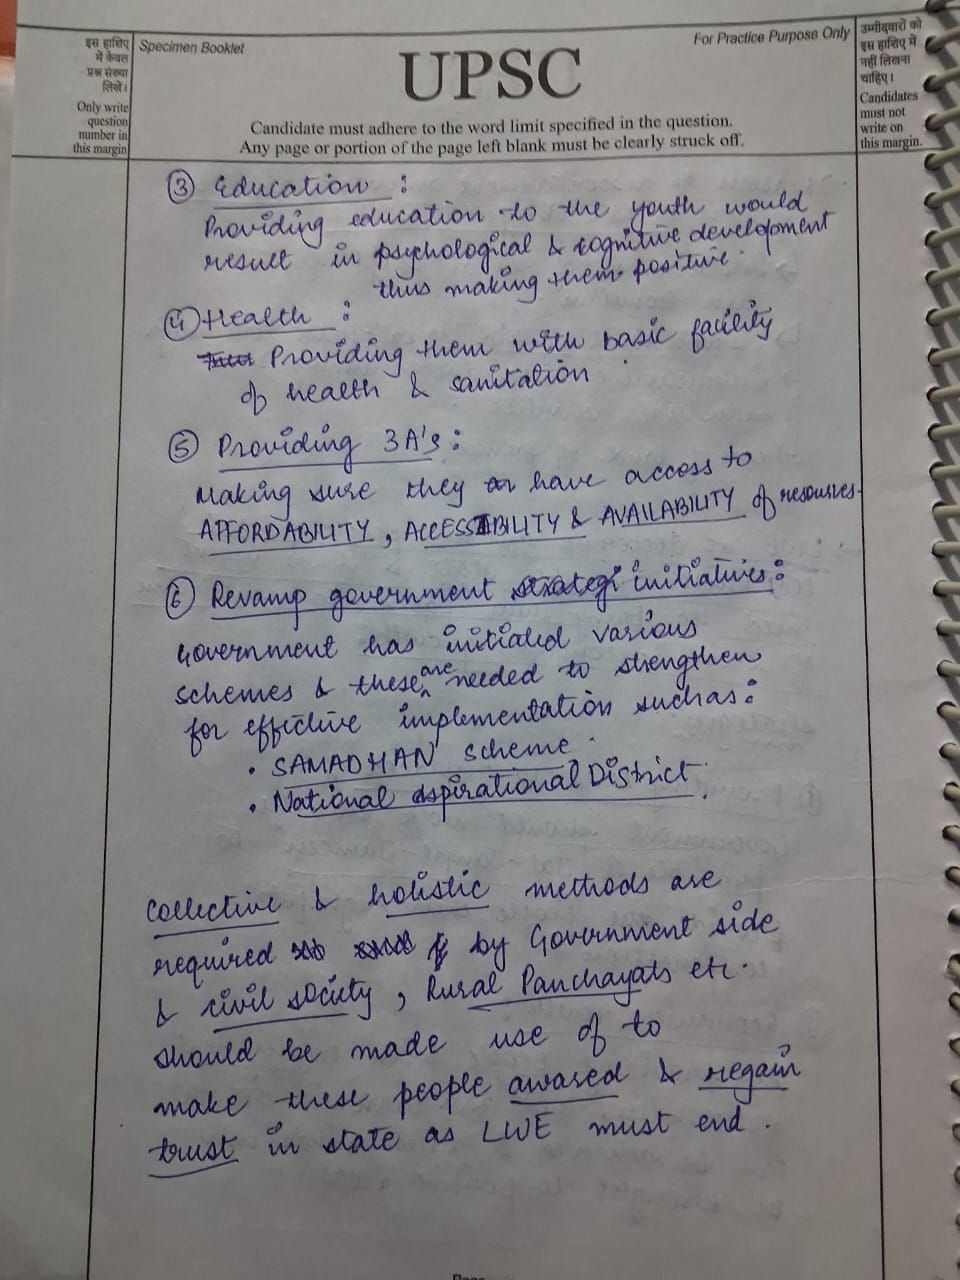 इस हाशिए
में केवल
प्रश्न संख्या
लिखें।
Only write
question
number in
this margin
Specimen Booklet
For Practice Purpose Only
UPSC
Candidate must adhere to the word limit specified in the question.
Any page or portion of the page left blank must be clearly struck off.
उम्मीदवारों को
इस हाशिए में
नहीं लिखना
चाहिए।
Candidates
must not
write on
this margin.
③ Education :
Providing education to the youth would
result in psychological & cognitive development
thus making them positive.
④ Health :
Providing them with basic facility
of health & sanitation
⑤ Providing 3A's :
Making sure they have access to
AFFORDABILITY, ACCESSIBILITY & AVAILABILITY of resources.
⑥ Revamp government strategi initiatives :
Government has initiated various
schemes & these are needed to strengthen
for effective implementation such as :
• SAMADHAN scheme.
• National aspirational District.
Collective & holistic methods are
required by Government side
& civil society, Rural Panchayats etc.
should be made use of to
make these people awared & regain
trust in state as LWE must end.